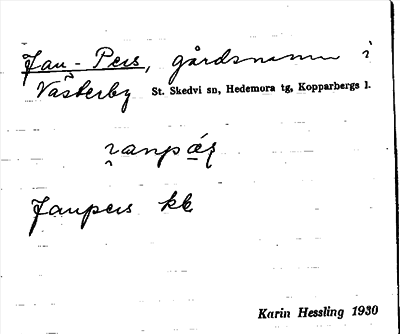 Jan-Pers, gårdsnamn i
Västerby St. Skedvi sn, Hedemora tg, Kopparbergs l.
Janpers kk
Karin Hessling 1930